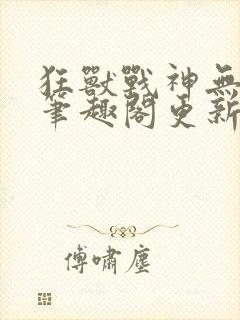 狂獸戰神無
筆趣閣更新
傅嘯塵